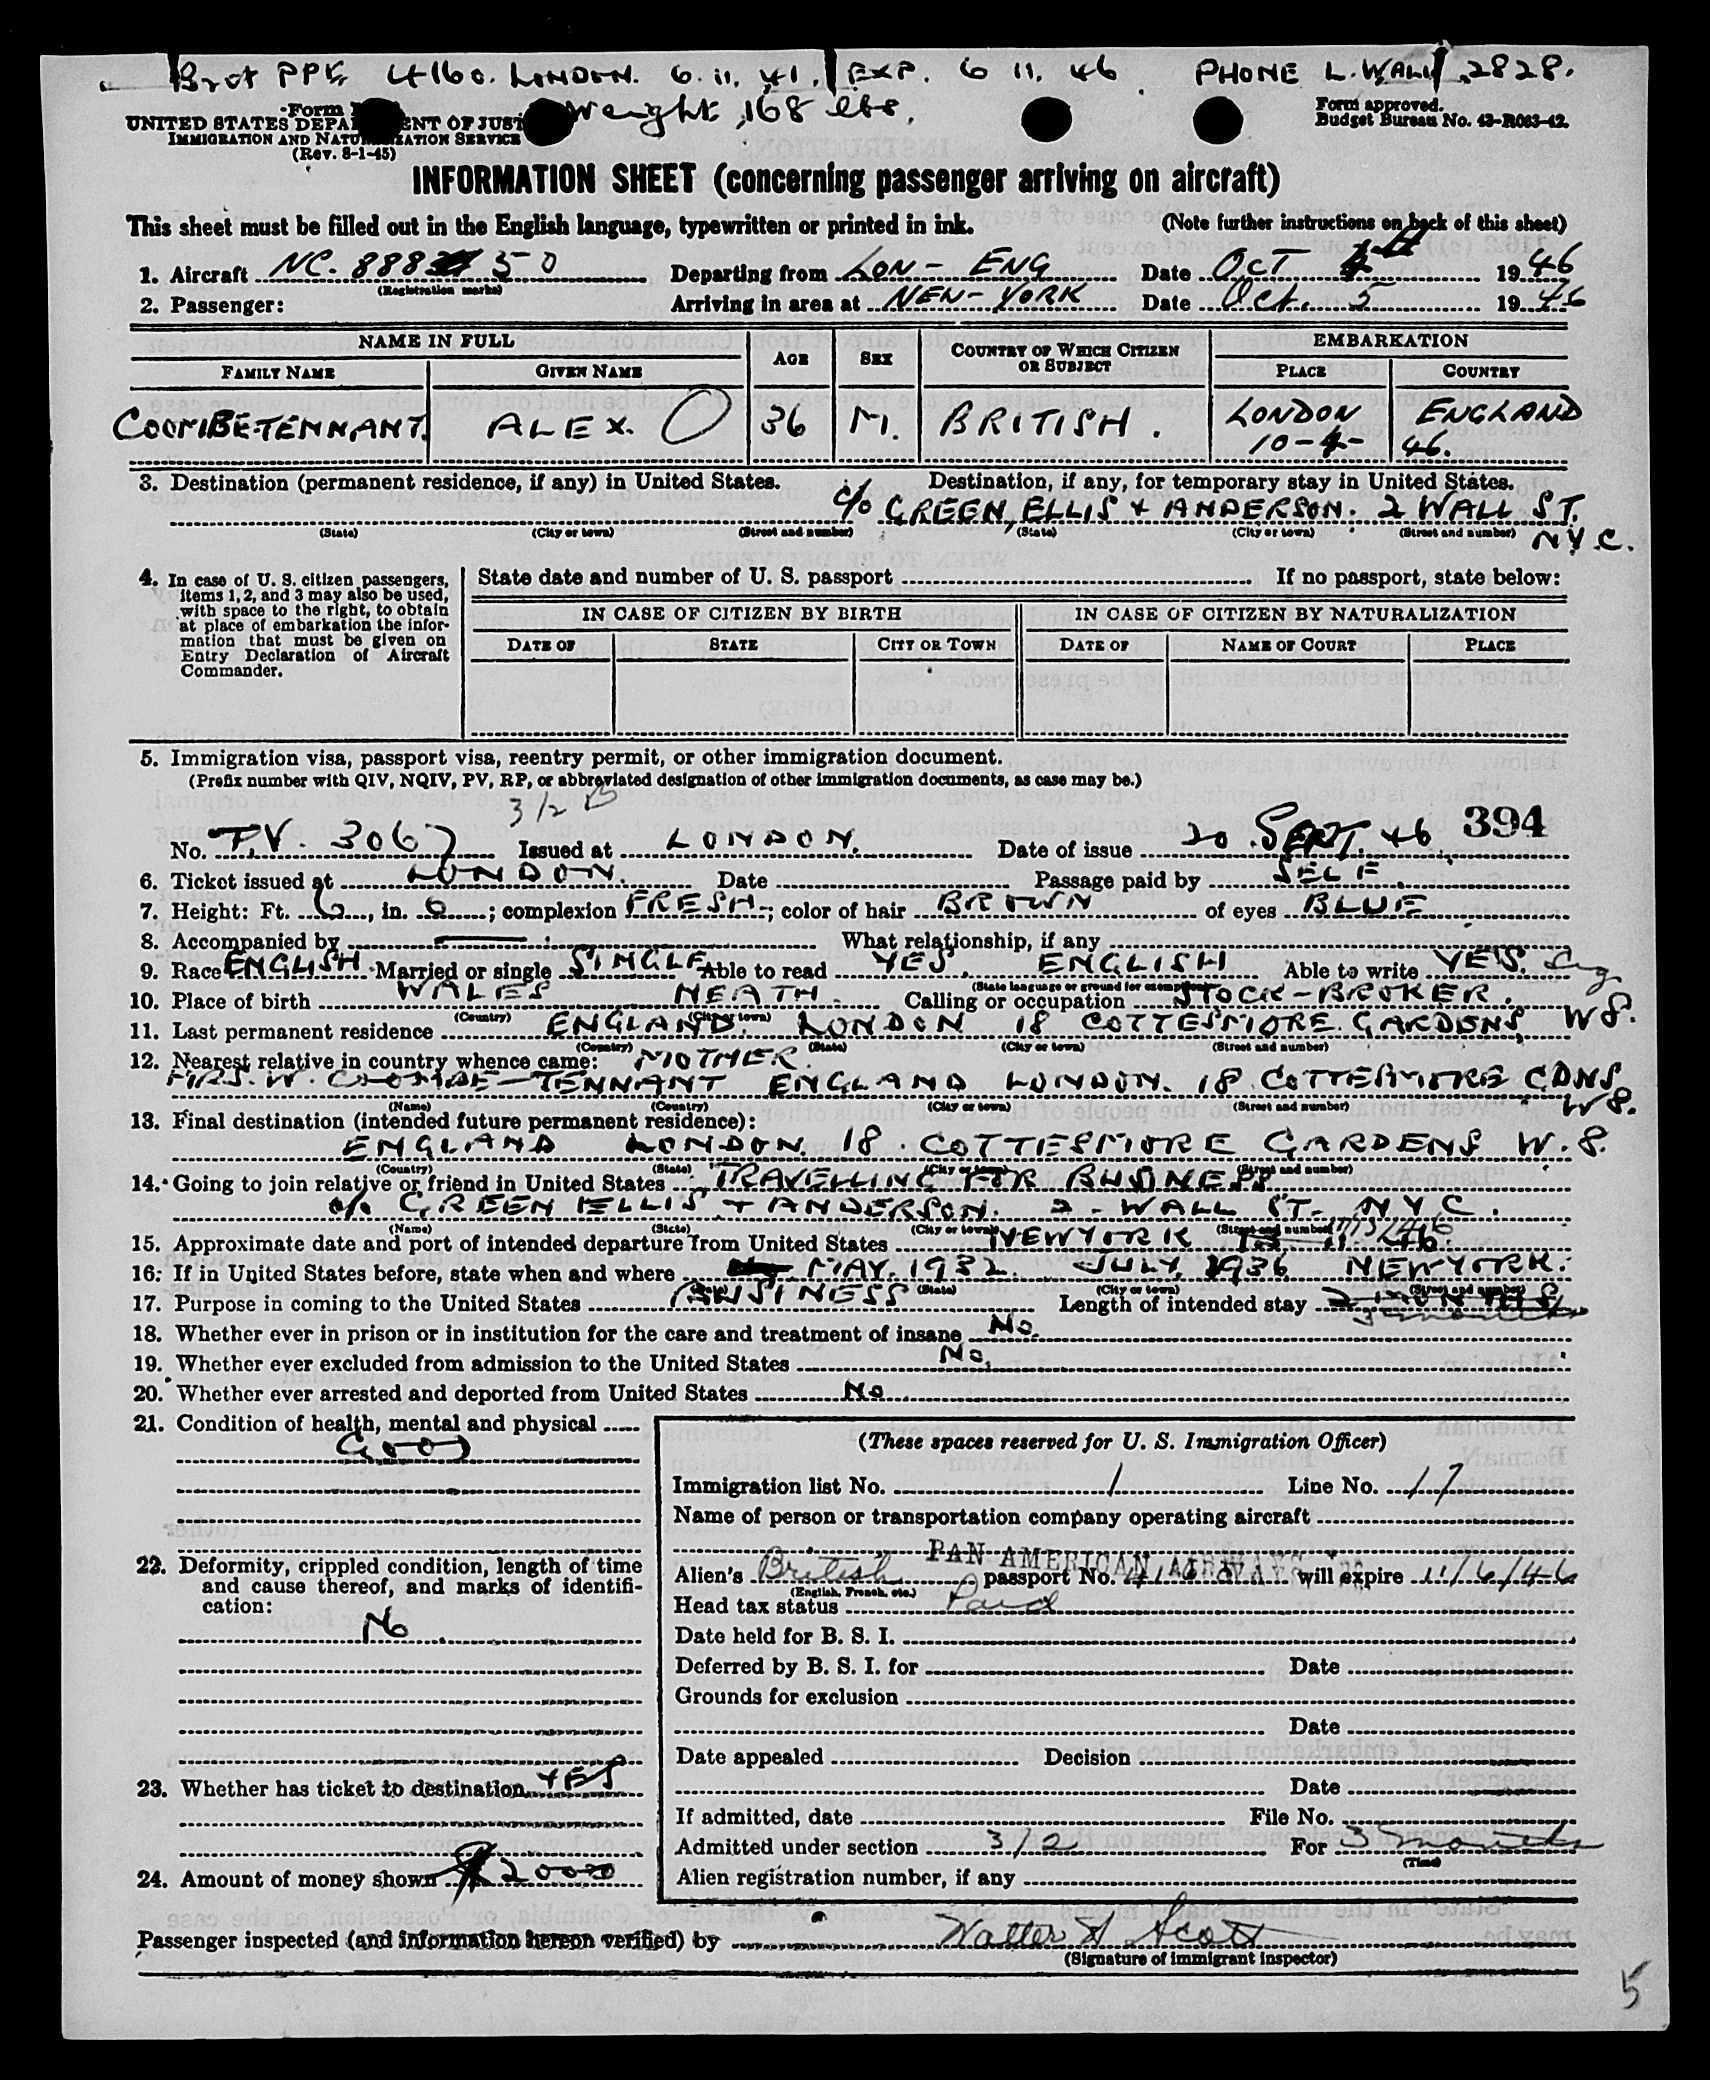 Brit PPt 4160. LONDON. 6. 11. 41. EXP. 6 11. 46 PHONE L. WALL 2828.
Weight 168 lbs.
Form
UNITED STATES DEPARTMENT OF JUST
IMMIGRATION AND NATURALIZATION SERVICE
(Rev. 8-1-45)
Form approved.
Budget Bureau No. 43-R083-42.
INFORMATION SHEET (concerning passenger arriving on aircraft)
This sheet must be filled out in the English language, typewritten or printed in ink. (Note further instructions on back of this sheet)
1. Aircraft NC. 888 50 Departing from LON - ENG Date OCT 4th 1946
(Registration marks)
2. Passenger: Arriving in area at NEW-YORK Date Oct. 5 1946
NAME IN FULL AGE SEX COUNTRY OF WHICH CITIZEN OR SUBJECT EMBARKATION
FAMILY NAME GIVEN NAME PLACE COUNTRY
COOMBETENNANT. ALEX. O 36 M. BRITISH. LONDON ENGLAND
10-4- 46.
3. Destination (permanent residence, if any) in United States. Destination, if any, for temporary stay in United States.
c/o GREEN, ELLIS & ANDERSON. 2 WALL ST.
(State) (City or town) (Street and number) (State) (City or town) (Street and number) N.Y.C.
4. In case of U. S. citizen passengers, items 1, 2, and 3 may also be used, with space to the right, to obtain at place of embarkation the information that must be given on Entry Declaration of Aircraft Commander.
State date and number of U. S. passport If no passport, state below:
IN CASE OF CITIZEN BY BIRTH IN CASE OF CITIZEN BY NATURALIZATION
DATE OF STATE CITY OR TOWN DATE OF NAME OF COURT PLACE
5. Immigration visa, passport visa, reentry permit, or other immigration document.
(Prefix number with QIV, NQIV, PV, RP, or abbreviated designation of other immigration documents, as case may be.)
3/2 B
394
No. T.V. 3067 Issued at LONDON. Date of issue 20. SEPT. 46
6. Ticket issued at LONDON. Date Passage paid by SELF
7. Height: Ft. 6, in. 0; complexion FRESH; color of hair BROWN of eyes BLUE
8. Accompanied by What relationship, if any
9. Race ENGLISH Married or single SINGLE Able to read YES, ENGLISH Able to write YES. Eng
(State language or ground for exemption)
10. Place of birth WALES NEATH. Calling or occupation STOCK-BROKER.
(Country) (City or town)
11. Last permanent residence ENGLAND. LONDON 18 COTTESMORE GARDENS, W8.
(Country) (State) (City or town) (Street and number)
12. Nearest relative in country whence came: MOTHER.
MRS. W. COOMBE-TENNANT ENGLAND LONDON. 18 COTTESMORE GDNS
(Name) (Country) (City or town) (Street and number) W8.
13. Final destination (intended future permanent residence):
ENGLAND LONDON. 18. COTTESMORE GARDENS W. 8.
(Country) (State) (City or town) (Street and number)
14. Going to join relative or friend in United States TRAVELLING FOR BUSINESS
c/o GREEN ELLIS & ANDERSON. 2. WALL ST. N Y C.
(Name) (State) (City or town) (Street and number)
15. Approximate date and port of intended departure from United States NEW YORK
16. If in United States before, state when and where MAY. 1932. JULY 1936 NEW YORK.
(State) (City or town) (Street and number)
17. Purpose in coming to the United States BUSINESS Length of intended stay 3 months
18. Whether ever in prison or in institution for the care and treatment of insane No.
19. Whether ever excluded from admission to the United States No.
20. Whether ever arrested and deported from United States No
21. Condition of health, mental and physical
GOOD
22. Deformity, crippled condition, length of time and cause thereof, and marks of identification:
No
23. Whether has ticket to destination YES
24. Amount of money shown $2000
(These spaces reserved for U. S. Immigration Officer)
Immigration list No. 1 Line No. 17
Name of person or transportation company operating aircraft
PAN AMERICAN AIRWAYS
Alien's British passport No. will expire 11/6/46
(English, French, etc.)
Head tax status Paid
Date held for B. S. I.
Deferred by B. S. I. for Date
Grounds for exclusion
Date
Date appealed Decision
Date
If admitted, date File No.
Admitted under section 3/2 For 3 months
(Time)
Alien registration number, if any
Passenger inspected (and information hereon verified) by Walter A Scott
(Signature of immigrant inspector)
5